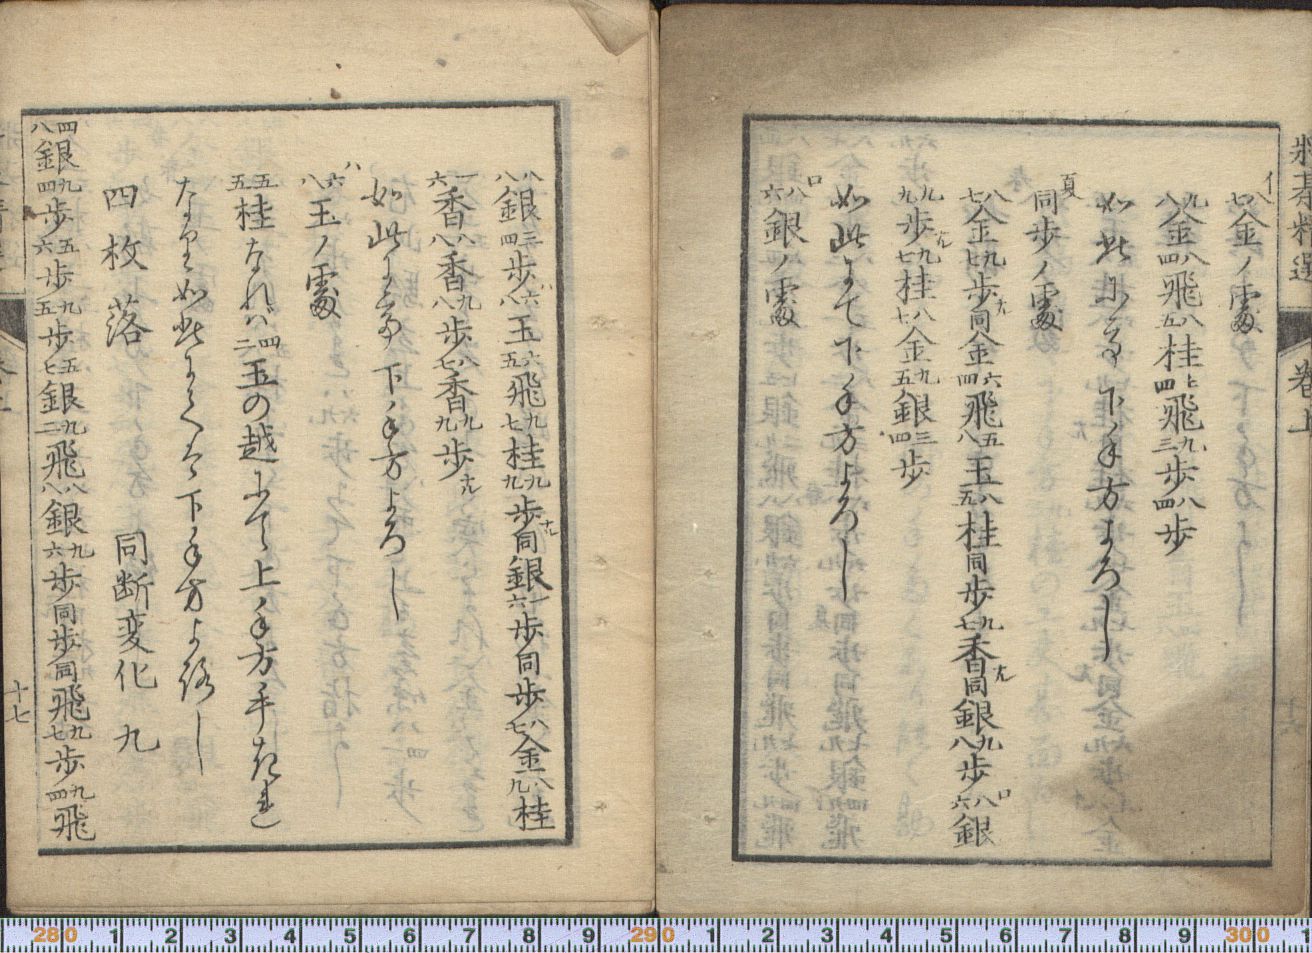 将棋精選 巻上
イ
八七金ノ処
九八金八四飛八五桂上四飛九三歩八四歩
如此にて下手方よろし
頁
同歩ノ処
八七金九七歩同金六四飛五八玉八五桂同歩九七香同銀九八歩八六銀
九九歩九七桂八七金九五銀三四歩
如此にて下手方よろし
ロ
八六銀ノ処
八八銀三四歩六八玉六五飛九七桂九九歩同銀一六歩同歩八七金八九桂
一六香八八香九八歩八七香九九歩
如此にて下手方よろし
ハ
六八玉ノ処
五五桂なれバ四二玉の越にて上手方
如此にてハ下手方よろし
四枚落 同断変化 九
四八銀九四歩五六歩九五歩五七銀九二飛八八銀九六歩同歩同飛九七歩九四飛
十七
280 1 2 3 4 5 6 7 8 9 290 1 2 3 4 5 6 7 8 9 300 1